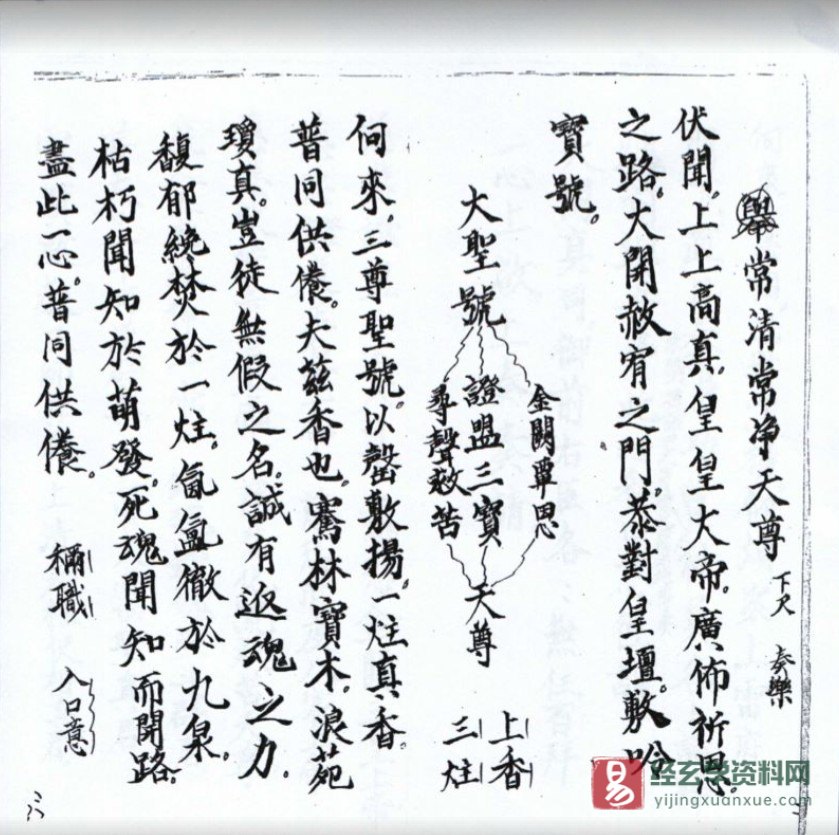 舉常清常净天尊 下尺 奏樂
伏聞。上上高真。皇皇大帝。廣佈祈恩。
之路。大開赦宥之門。恭對皇壇。敷吟
寶號。
大聖號 金闕覃恩 證盟三寶 尋聲救苦 天尊 上香 三炷
何來。三尊聖號。以罄敷揚。一炷真香。
普同供養。夫茲香也。騫林寶木。浪苑
瓊真。豈徒無假之名。誠有返魂之力。
馥郁纔焚於一炷。氤氳徹於九泉。
枯朽聞知於萌發。死魂聞知而開路。
盡此一心。普同供養。 稱職 入口意
经玄学资料网
yijingxuanxue.com
易